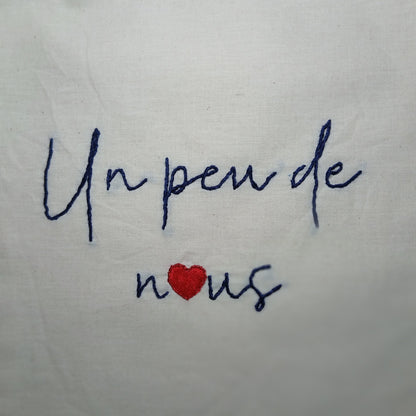 Un peu de
n❤us